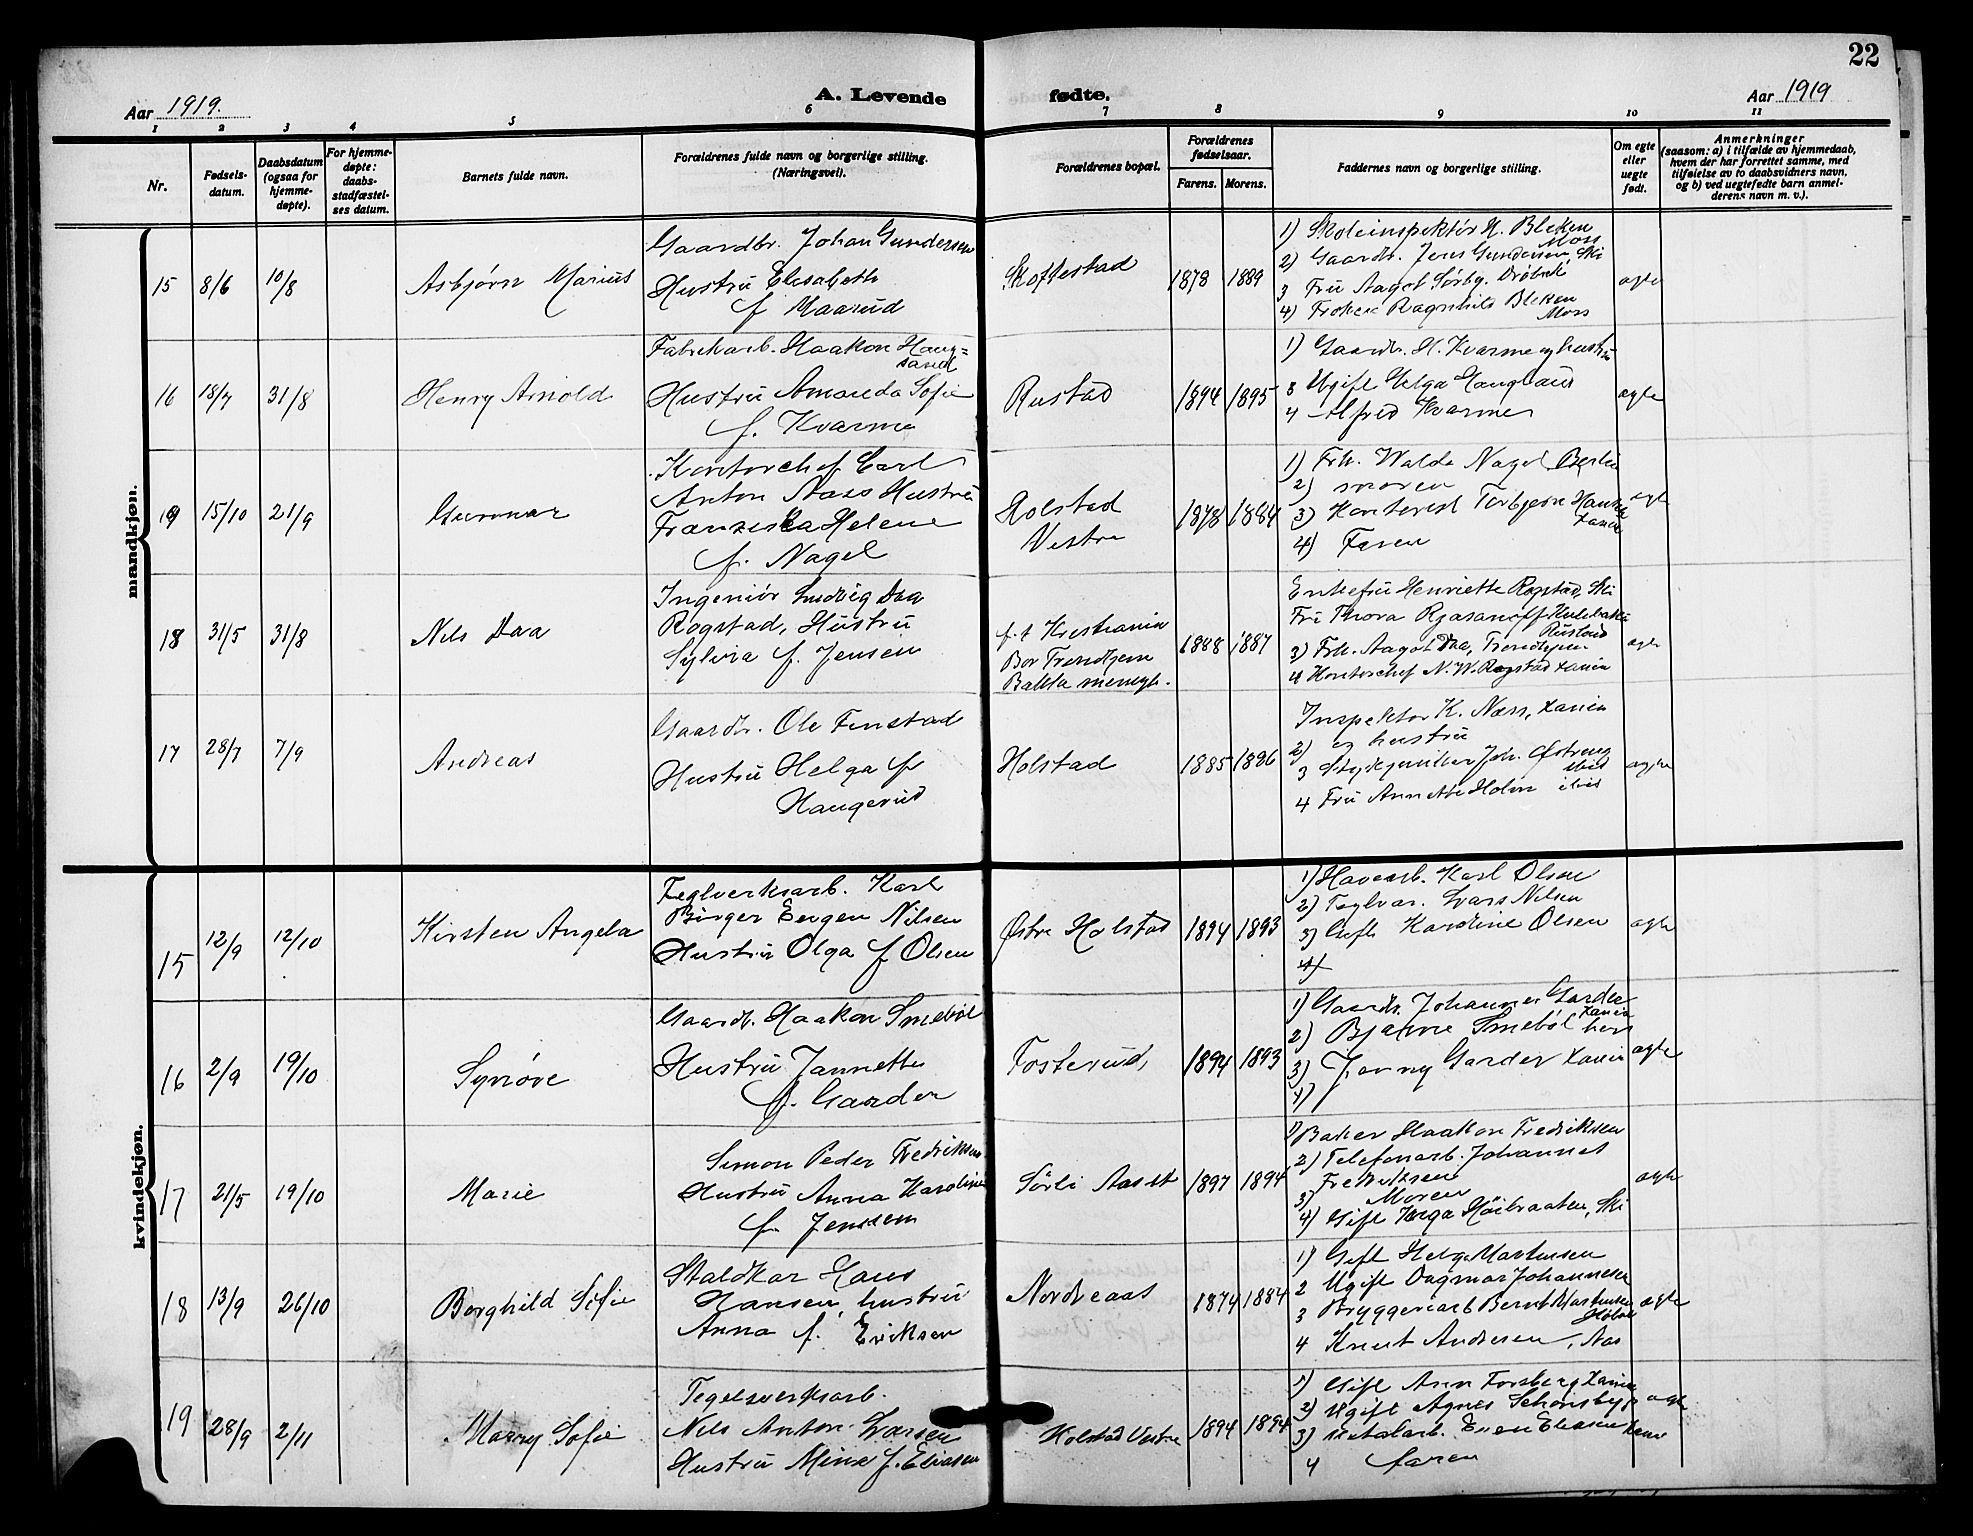 22
Aar 1919.
A. Levende
fødte.
Aar 1919
1 2 3 4 5 6 7 8 9 10 11
Nr.
Fødsels-
datum.
Daabsdatum
(ogsaa for
hjemme-
døpte).
For hjemme-
døpte:
daabs-
stadfæstel-
ses datum.
Barnets fulde navn.
Forældrenes fulde navn og borgerlige stilling.
(Næringsvei).
Forældrenes bopæl.
Forældrenes
fødselsaar.
Farens. Morens.
Faddernes navn og borgerlige stilling.
Om egte
eller
uegte
født.
Anmerkninger
(saasom: a) i tilfælde av hjemmedaab,
hvem der har forrettet samme, med
tilføielse av to daabsvidners navn,
og b) ved uegtefødte barn anmel-
derens navn m. v.).
mandkjøn.
15 8/6 10/8 Asbjørn Marius
Gaardbr. Johan Gundersen
Hustru Elisabeth
f. Maarud
Skoftestad 1878 1889
1) Skoleinspektør H. Bleken
Moss
2) Gaardbr. Jens Gundersen, Ski
3 Fru Aagot Sørby. Drøbak
4) Frøken Ragnhild Bleken
Moss
egte
16 18/7 31/8 Henry Arnold
Fabrikarb. Haakon Haug=
sand
Hustru Amanda Sofie
f. Kvarme
Rustad 1894 1895
1) Gaardbr. H. Kvarme og hustru
3 Ugift Helga Haugsand
4 Alfred Kvarme
egte
19 15/10 21/9 Gunnar
Kontorchef Carl
Anton Næss Hustru
Franziska Helene
f. Nagel
Holstad
Vestre
1878 1884
1) Frk. Walda Nagel Berlin
2) moren
3) Kontorist Torbjørn
4) Faren
egte
18 31/5 31/8 Nils Daa
Ingeniør Ludvig Daa
Rogstad, Hustru
Sylvia f. Jensen
f. t. Kristiania
Bor Trondhjem
Bakke menigh.
1888 1887
Enkefru Henriette Rogstad, Ski
Fru Thora
Rustad
3) Frk. Aagot Daa, Trondhjem
4 Kontorchef N. W. Rogstad Xania
egte
17 28/7 7/9 Andreas
Gaardbr. Ole Finstad
Hustru Helga f
Haugerud
Holstad 1885 1886
Inspektør K. Næss, Xania
2) og hustru
3 Joh. Østreng
ibid
4 Fru Annette Holm ibid
egte
kvindekjøn.
15 12/9 12/10 Kirsten Angela
Teglverksarb. Karl
Birger Eugen Nilsen
Hustru Olga f Olsen
Østre Holstad 1894 1893
1) Havearb. Karl Olsen
2) Teglvar. Lars Nilsen
3) Gift Karoline Olsen
4)
egte
16 2/9 19/10 Synøve
Gaardb. Haakon Smebøl
Hustru Jannette
f. Garder
Fosterud, 1894 1893
1) Gaardbr. Johannes Garder
Xania
2) Bjarne Smebøl her
3) Jenny Garder Xania
4)
egte
17 21/5 19/10 Marie
Simon Peder Fredriksen
Hustru Anna Karoline
f. Jenssen
Sørli Aaset 1897 1894
1) Baker Haakon Fredriksen
2) Telefonarb. Johannes
Fredriksen
3) Moren
4) Gift Helga Høibraaten, Ski
egte
18 13/9 26/10 Borghild Sofie
Staldkar Hans
Hansen, hustru
Anna f. Eriksen
Nordreaas 1874 1884
1) Gift Helga Martinsen
2 Ugift Dagmar Johannesen
3 Bryggeriarb Bernt Martinsen
4 Knut Andersen, Aas
egte
19 28/9 2/11 Marry Sofie
Tegelsverksarb.
Nils Anton Larsen
Hustru Mina f. Eliasen
Holstad Vestre 1894 1894
1) Gift Ann Forsberg Xania
2) Ugift Agnes Schønsby
3) Metalarb. Even Eliasen
4 faren
egte